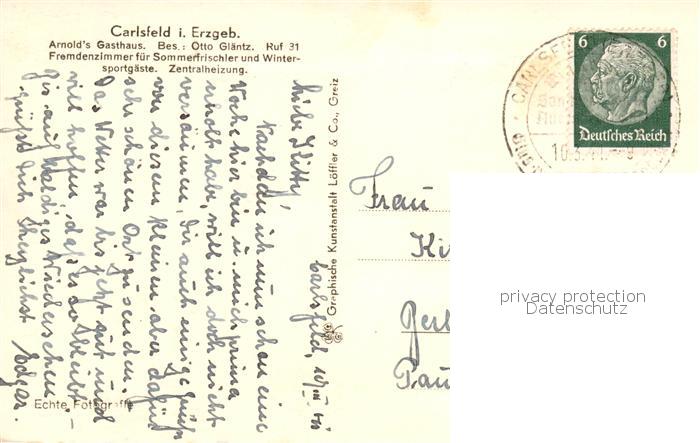 Carlsfeld i. Erzgeb.
Arnold's Gasthaus. Bes.: Otto Gläntz. Ruf 31
Fremdenzimmer für Sommerfrischler und Winter-
sportgäste. Zentralheizung.
Carlsfeld, 10/III
Liebe Kitty!
Nachdem ich nun schon eine
Woche hier bin u. mich prima
erholt habe, will ich doch nicht
versäumen, Dir auch einige Grüße
von diesem kleinen aber dafür
sehr schönen Ort zu senden.
Das Wetter war bis jetzt gut und
will hoffen, daß es so bleibt.
auf baldiges Wiedersehen
grüßt Dich herzlichst Edgar.
Echte Fotografie
Graphische Kunstanstalt Löffler & Co., Greiz
6 6
Deutsches Reich
CARLSFE
10.3.41.-9
Frau
Ki
Gerl
privacy protection
Datenschutz